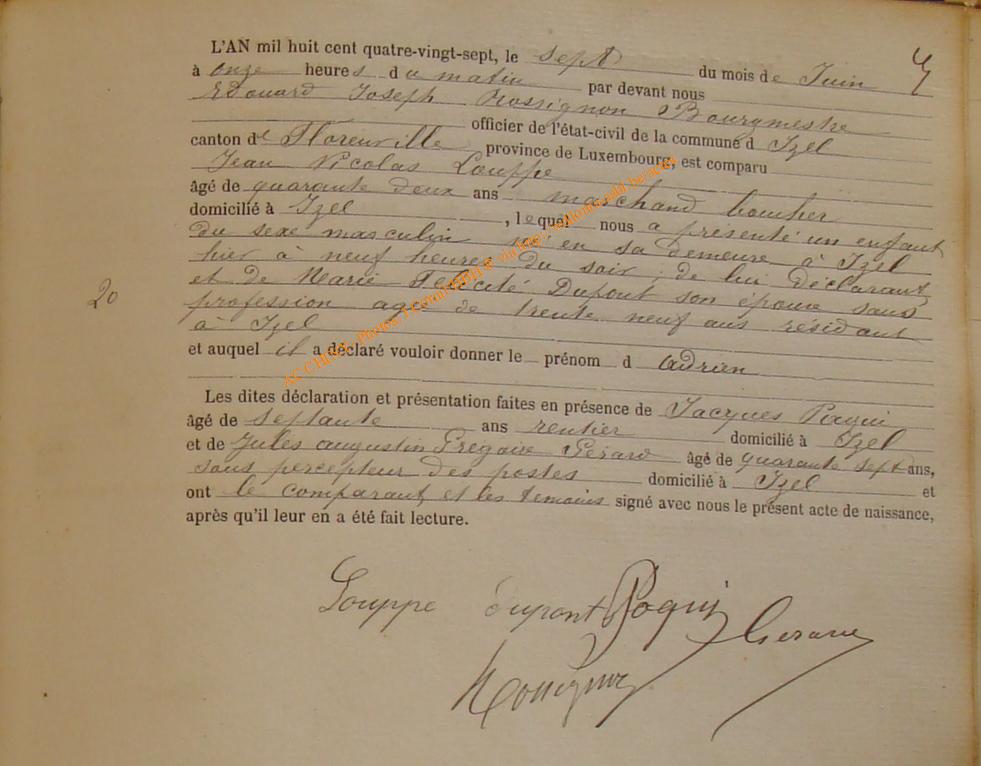 L'AN mil huit cent quatre-vingt-sept, le sept du mois de Juin
à onze heures du matin par devant nous
Edouard Joseph Rossignon Bourgmestre
officier de l'état-civil de la commune d Izel
canton de Florenville province de Luxembourg, est comparu
Jean Nicolas Louppe
âgé de quarante deux ans marchand boucher
domicilié à Izel , lequel nous a présenté un enfant
du sexe masculin né en sa demeure à Izel
hier à neuf heures du soir, de lui déclarant
et de Marie Félicité Dupont son épouse sans
20
profession agée de trente neuf ans résidant
à Izel
et auquel il a déclaré vouloir donner le prénom d adrien
Les dites déclaration et présentation faites en présence de Jacques Poqui
âgé de septante ans rentier domicilié à Izel
et de Jules augustin Grégoire Gérard âgé de quarante sept ans,
sous percepteur des postes domicilié à Izel et
ont le comparant et les témoins signé avec nous le présent acte de naissance,
après qu'il leur en a été fait lecture.
Louppe dupont Poqui Gerard
Rossignon